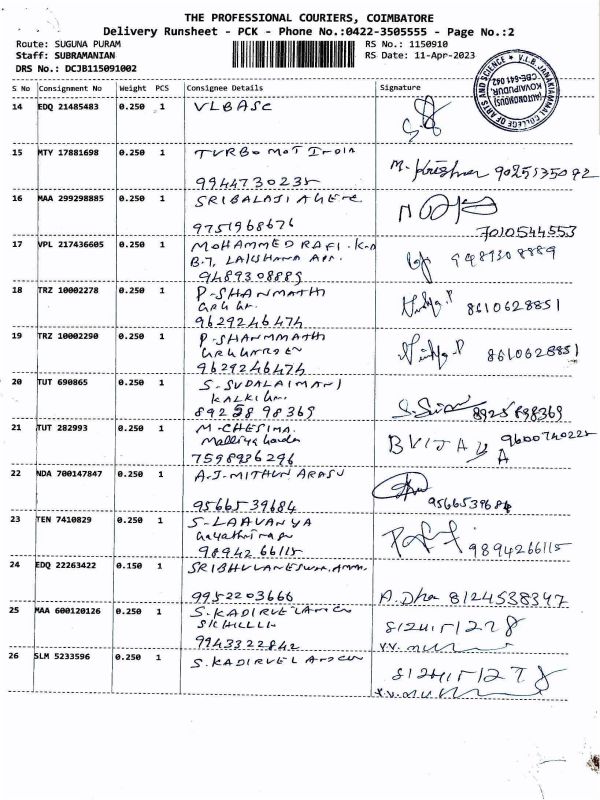 THE PROFESSIONAL COURIERS, COIMBATORE
Delivery Runsheet - PCK - Phone No.:0422-3505555 - Page No.:2
Route: SUGUNA PURAM RS No.: 1150910
Staff: SUBRAMANIAN RS Date: 11-Apr-2023
DRS No.: DCJB115091002
V.L.B. JANAKIAMMAL COLLEGE OF ARTS AND SCIENCE
(AUTONOMOUS)
KOVAIPUDUR
CBE-641 042
S No Consignment No Weight PCS Consignee Details Signature
14 EDQ 21485483 0.250 1 VLBASC
15 MTY 17881698 0.250 1 TURBO MOT INDIA
9944730235 M. Krishna 9025135092
16 MAA 299298885 0.250 1 SRI BALAJI AGENC
9751968676 7010544553
17 VPL 217436605 0.250 1 MOHAMMED RAFI. K.A
B-7, LAKSHANA APR. 9489308889
9489308889
18 TRZ 10002278 0.250 1 P-SHANMATHI
8610628851
9629246474
19 TRZ 10002290 0.250 1 P-SHANMMATHI
8610628851
9629246474
20 TUT 690865 0.250 1 S-SUDALAIMANI
KALKI
8925898369 8925898369
21 TUT 282993 0.250 1 M-CHESIMA.
BVIJAY 9600740225
7598936296 A
22 NDA 700147847 0.250 1 A.J-MITHUN ARASU
9566539684 9566539684
23 TEN 7410829 0.250 1 S-LAAVANYA
Gayathri nagar
9894266115 9894266115
24 EDQ 22263422 0.150 1 SRIBHUVANESWAR.AMM.
9952203666 A. Dha 8124538347
25 MAA 600120126 0.250 1 S.KADIRVELANCU
8124151278
9943322842
26 SLM 5233596 0.250 1 S.KADIRVELANCU
8124151278